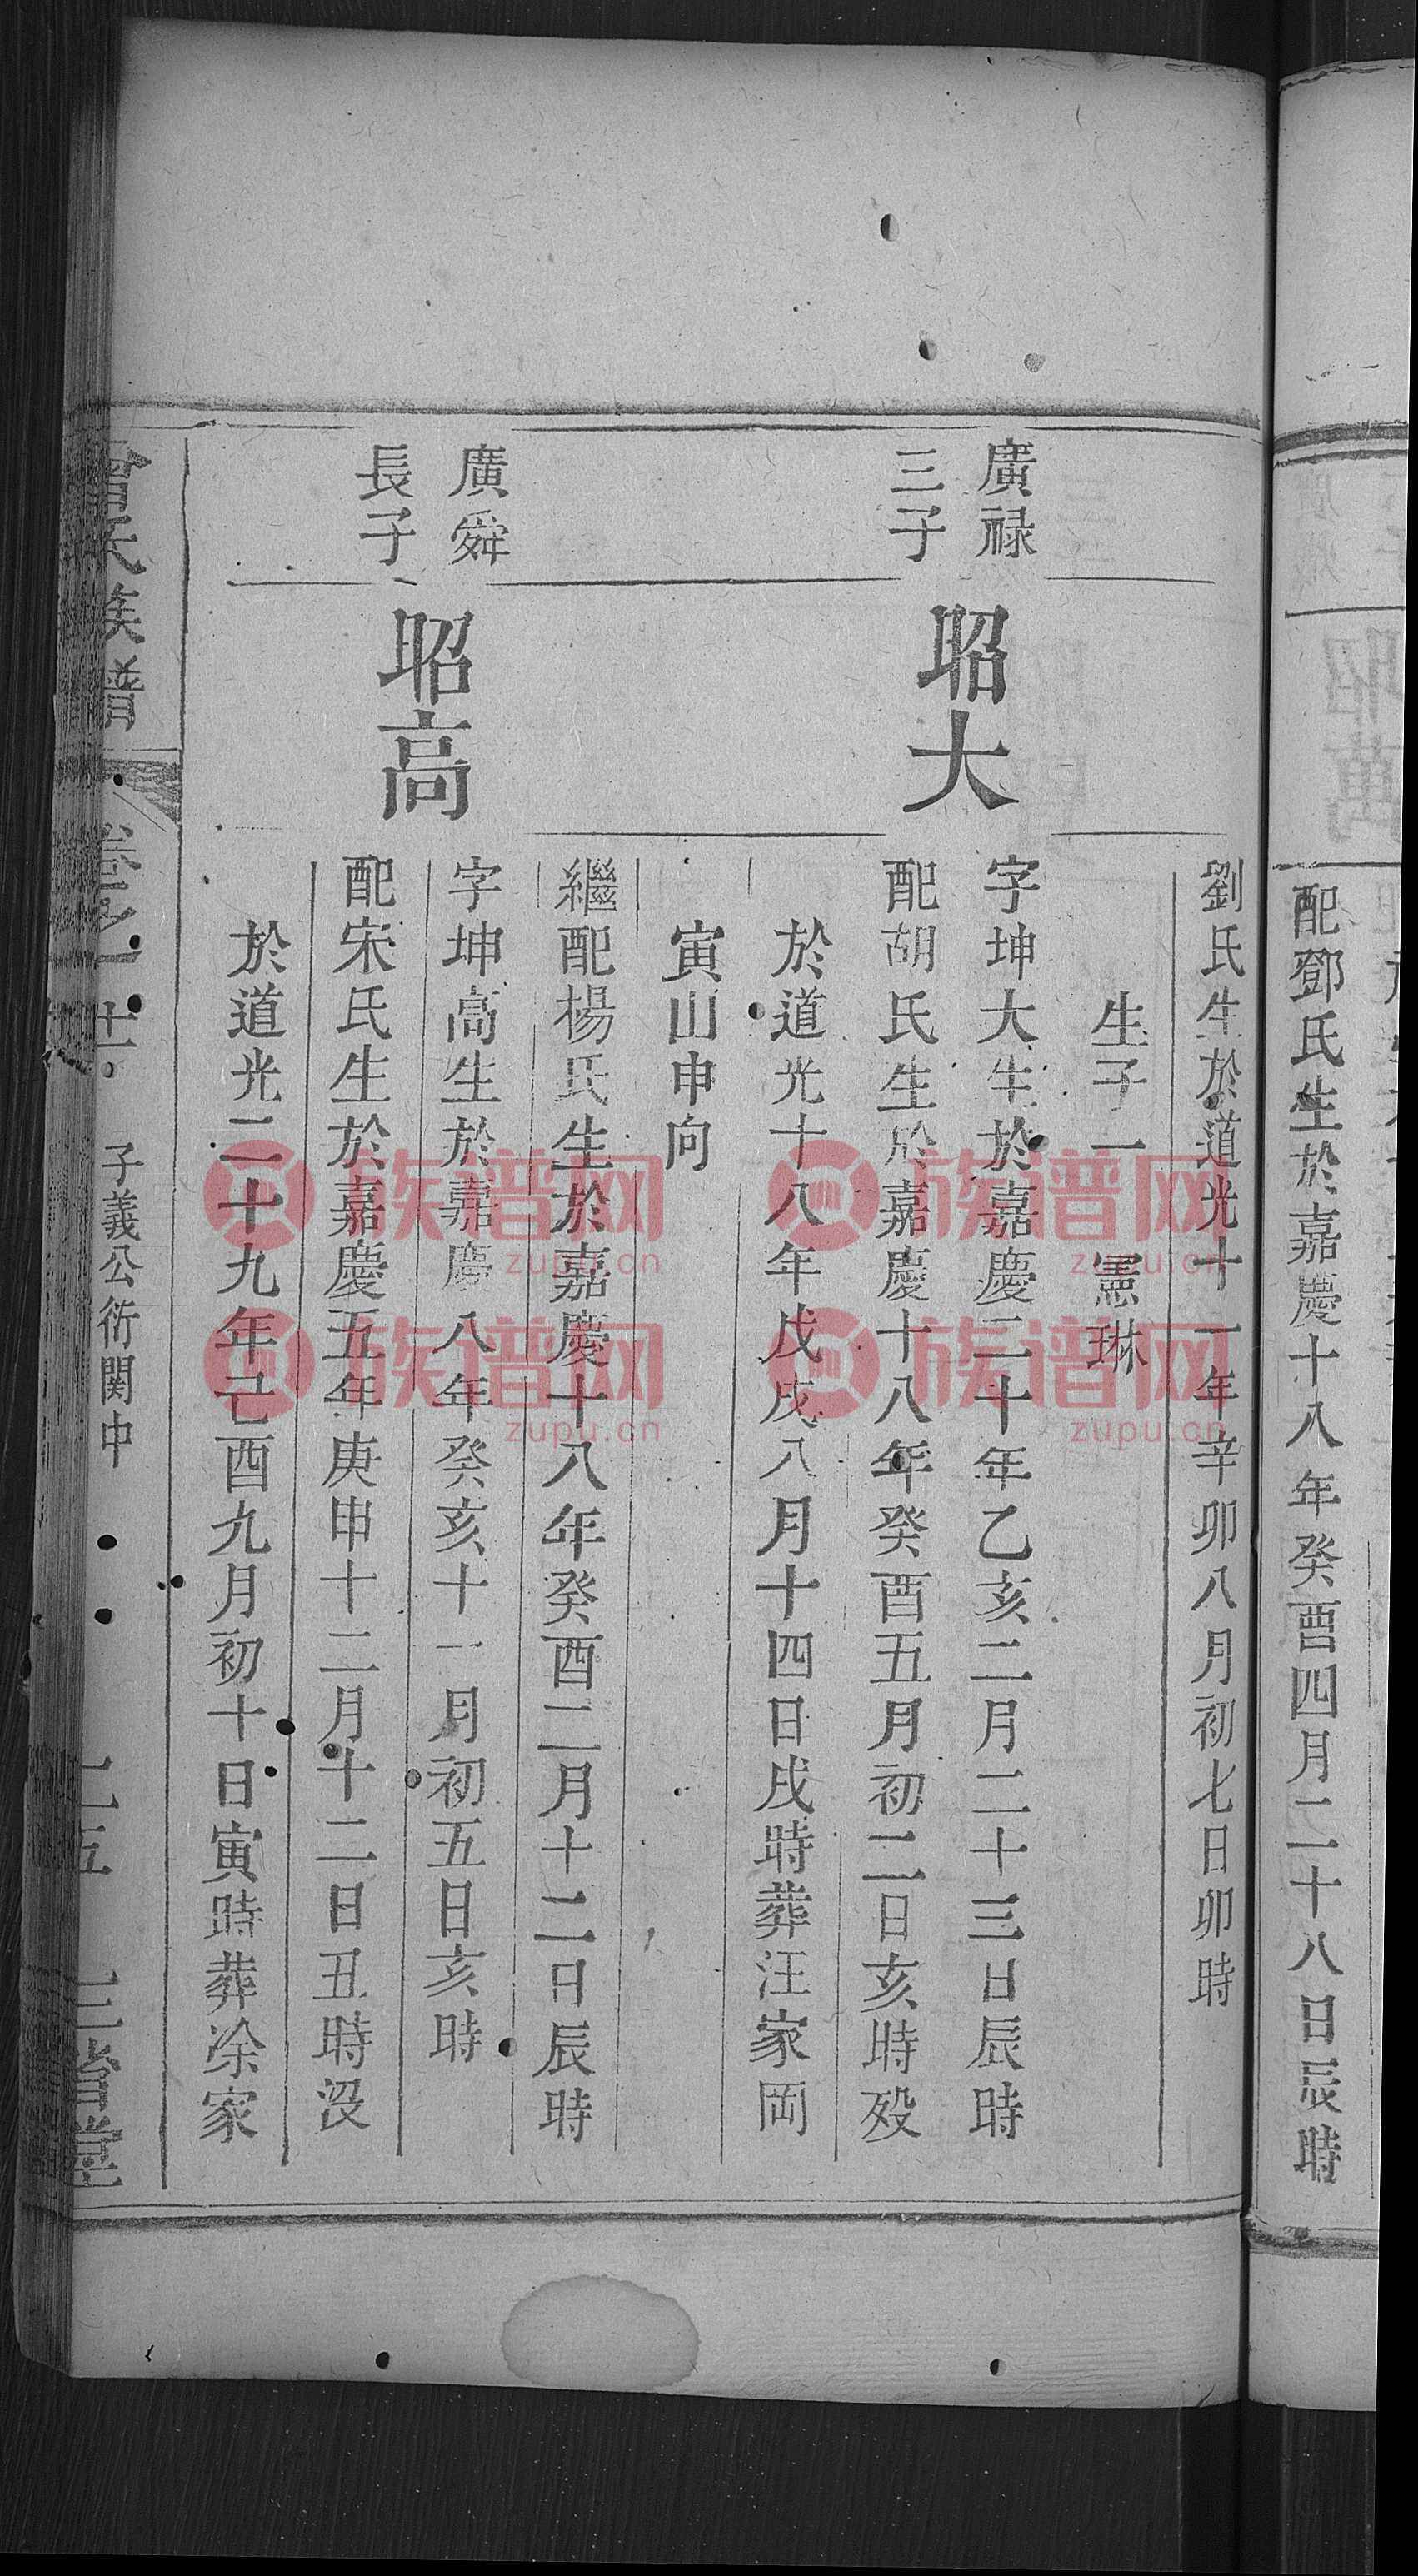 配鄧氏生於嘉慶十八年癸酉四月二十八日辰時
劉氏生於道光十一年辛卯八月初七日卯時
生子一 憲琳
廣禄
三子
昭大
字坤大生於嘉慶二十年乙亥二月二十三日辰時
配胡氏生於嘉慶十八年癸酉五月初二日亥時殁
於道光十八年戊戌八月十四日戌時葬汪家岡
寅山申向
繼配楊氏生於嘉慶十八年癸酉二月十二日辰時
廣舜
長子
昭高
字坤高生於嘉慶八年癸亥十一月初五日亥時
配宋氏生於嘉慶五年庚申十二月十二日丑時没
於道光二十九年己酉九月初十日寅時葬涂家
曾氏族譜
卷之十一
子義公衍関中
三省堂
族谱网
zupu.cn
族谱网
zupu.cn
族谱网
zupu.cn
族谱网
zupu.cn